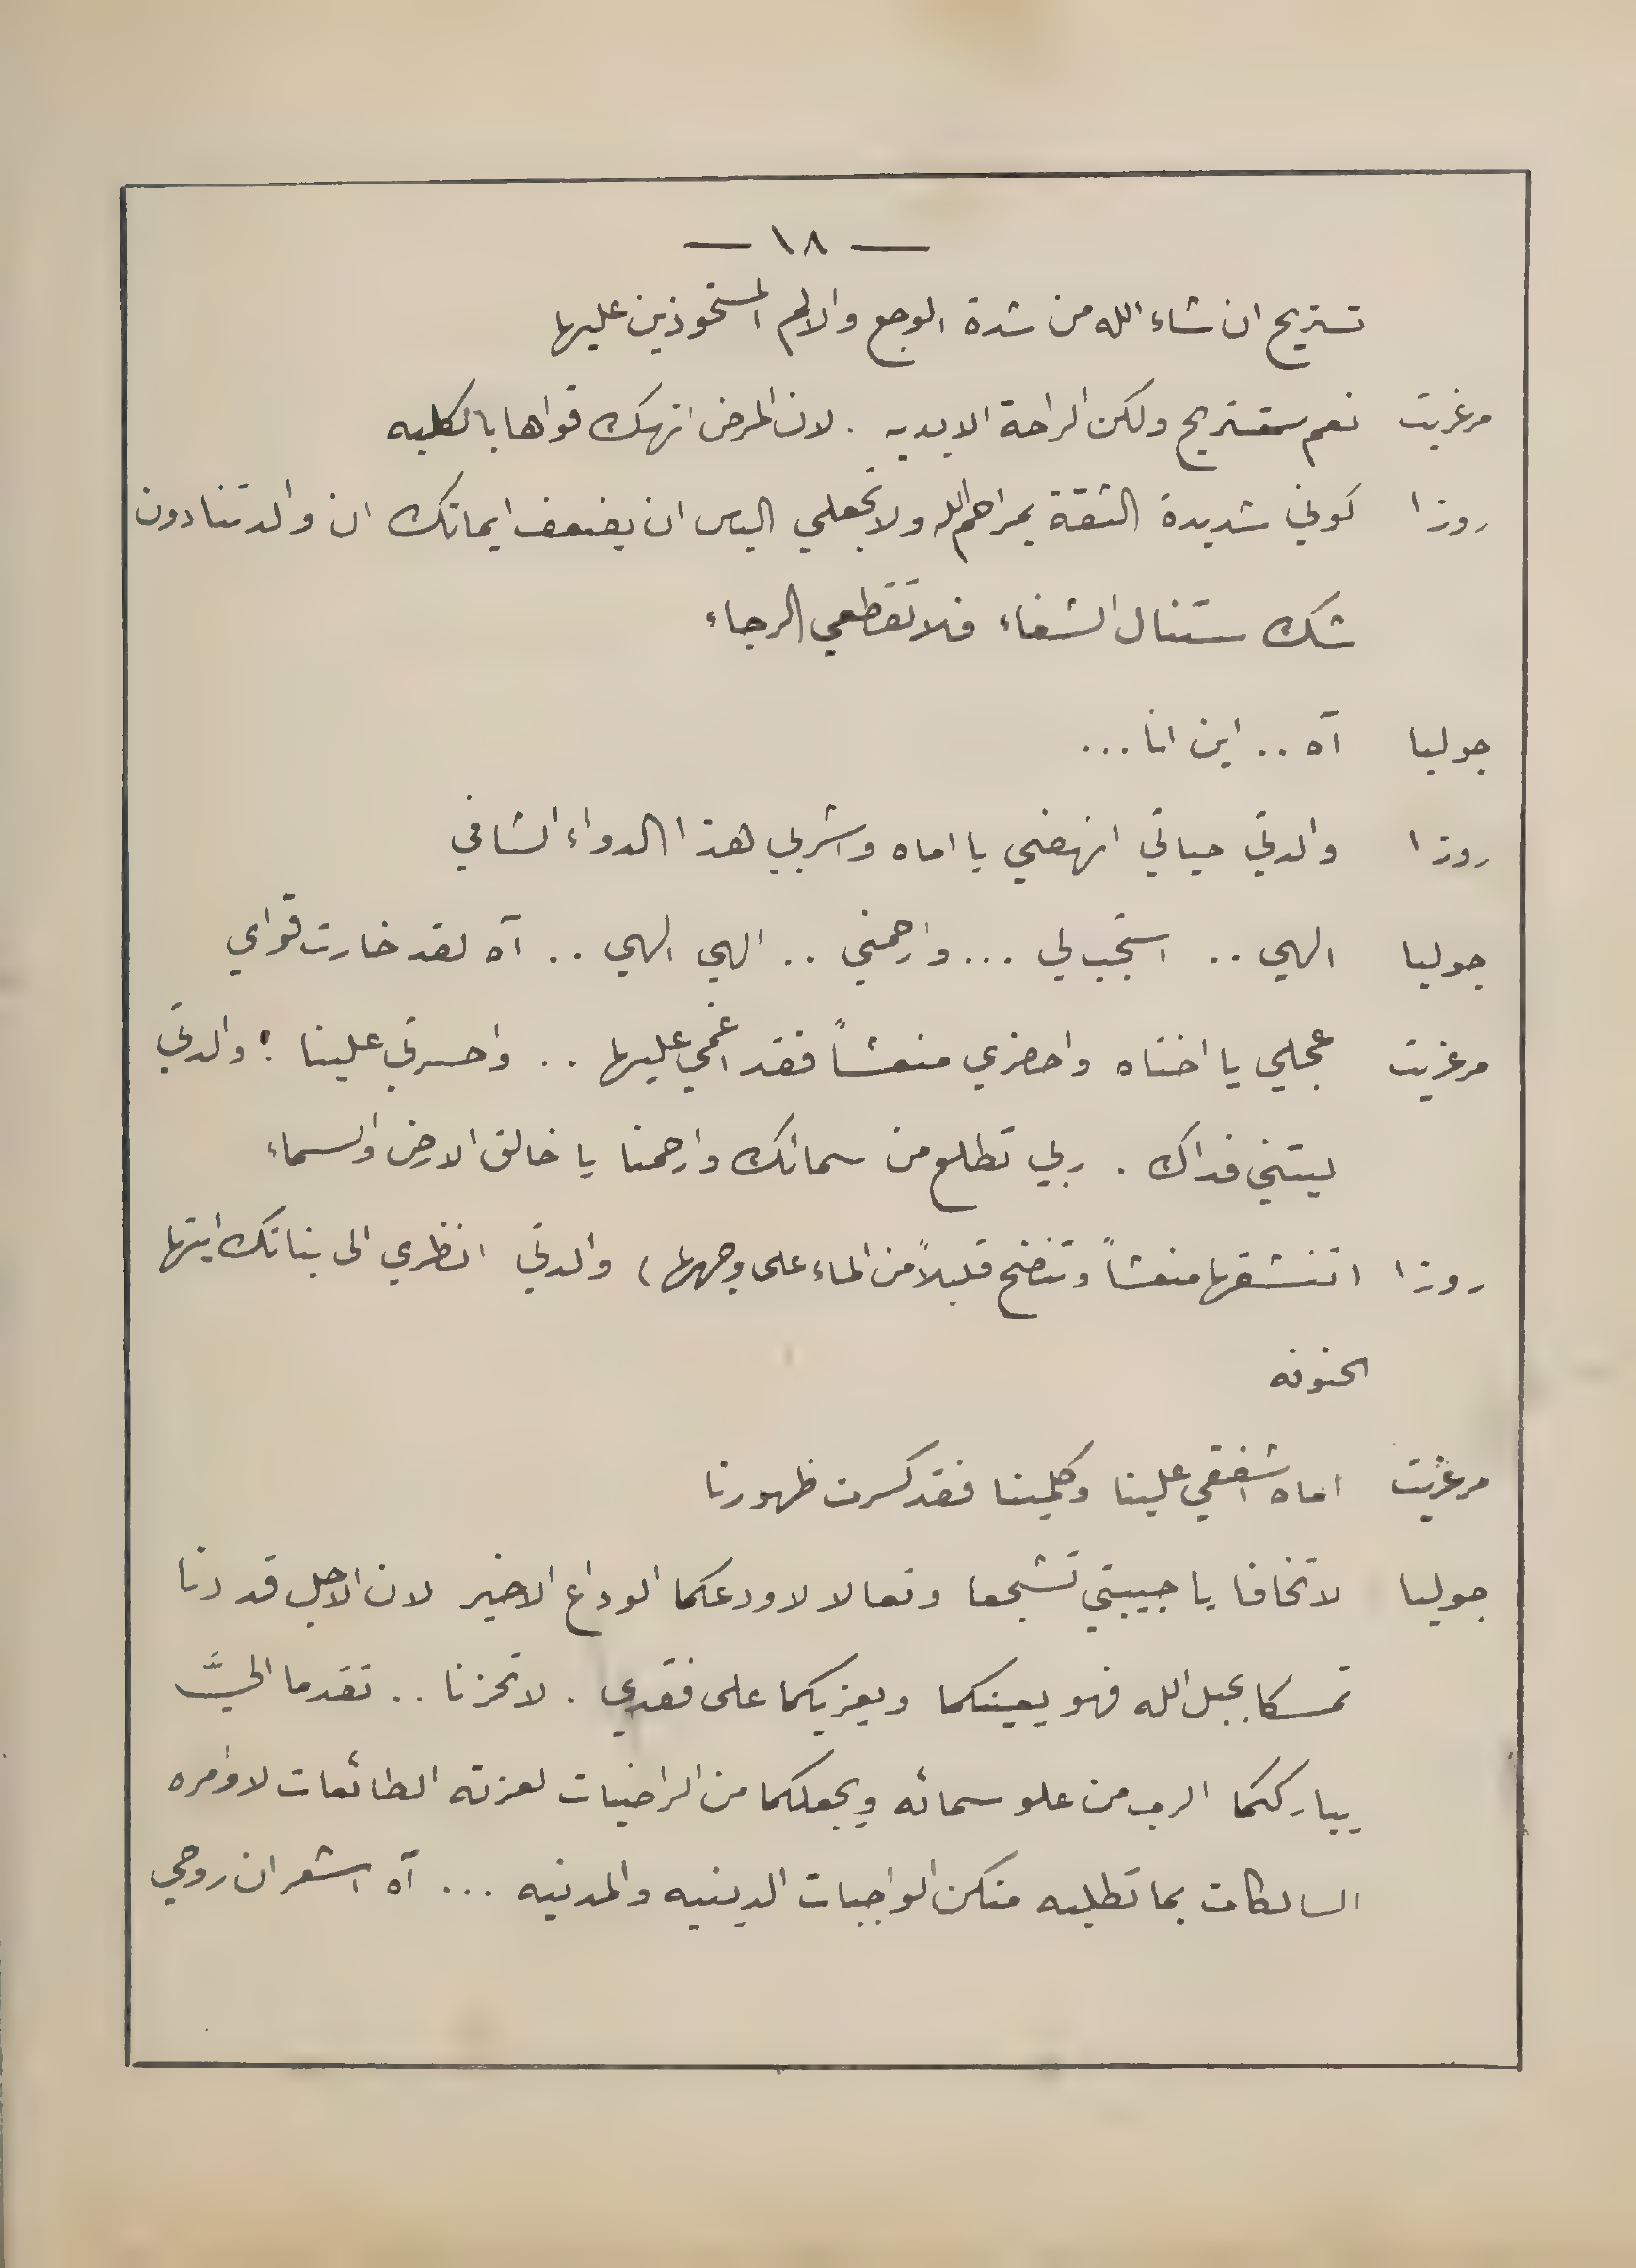 — ١٨ —
تستريح ان شاء الله من شدة الوجع والالم المستحوذين عليها
مرغريت نعم ستستريح ولكن الراحة الابديه . لان المرض انهك قواها بالكليه
روزا كوني شديدة الثقة بمراحم الله ولا تجعلي اليأس ان يضعف ايمانك ان والدتنا دون
شك ستنال الشفاء فلا تقطعي الرجاء
جوليا آه .. اين انا ...
روزا والدتي حياتي انهضي يا اماه واشربي هذا الدواء الشافي
جوليا الهي .. استجب لي ... وارحمني .. الهي الهي .. آه لقد خارت قواي
مرغريت عجلي يا اختاه واحضري منعشاً فقد اغمي عليها .. واحسرتي علينا ! والدتي
ليتني فداك . ربي تطلع من سمائك وارحمنا يا خالق الارض والسماء
روزا (تنشقها منعشاً وتنضح قليلاً من الماء على وجهها) والدتي انظري الى بناتك أيتها
الحنونه
مرغريت اماه اشفقي علينا وكلمينا فقد كسرت ظهورنا
جوليا لا تخافا يا حبيبتي تشجعا وتعالا لاودعكما الوداع الاخير لان الاجل قد دنا
تمسكا بحبل الله فهو يعينكما ويعزيكما على فقدي . لا تحزنا .. تقدما اليَّ
يبارككما الرب من علو سمائه ويجعلكما من الراضيات لعزته الطائعات لاوامره
السالكات بما تطلبه منكن الواجبات الدينيه والمدنيه ... آه اشعر ان روحي